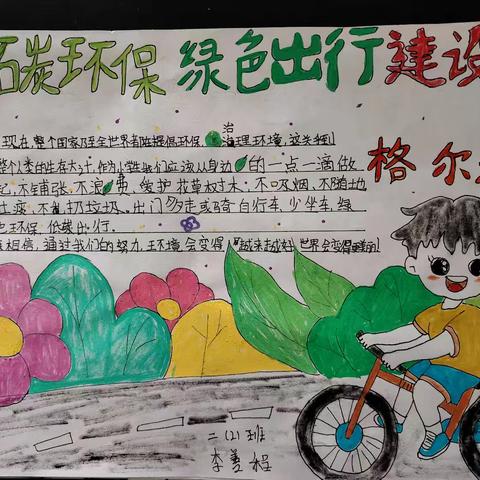 碳环保 绿色出行建设
格尔
治
现在,整个国家乃至全世界都在提倡环保,理环境,这关系到
整个人类的生存大计,作为小学生我们应该从身边的一点一滴做
起,不铺张、不浪费,爱护花草树木,不吸烟,不随地
吐痰,不乱扔垃圾,出门多走或骑自行车,少坐车,绿
色环保,低碳出行。
相信,通过我们的努力,环境会变得越来越好,世界会变得更美丽
二(2)班
李善程